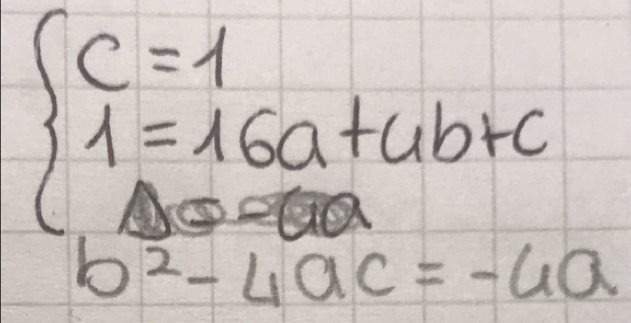 c = 1
1 = 16a + 4b + c
Δ = -4a
b² - 4ac = -4a